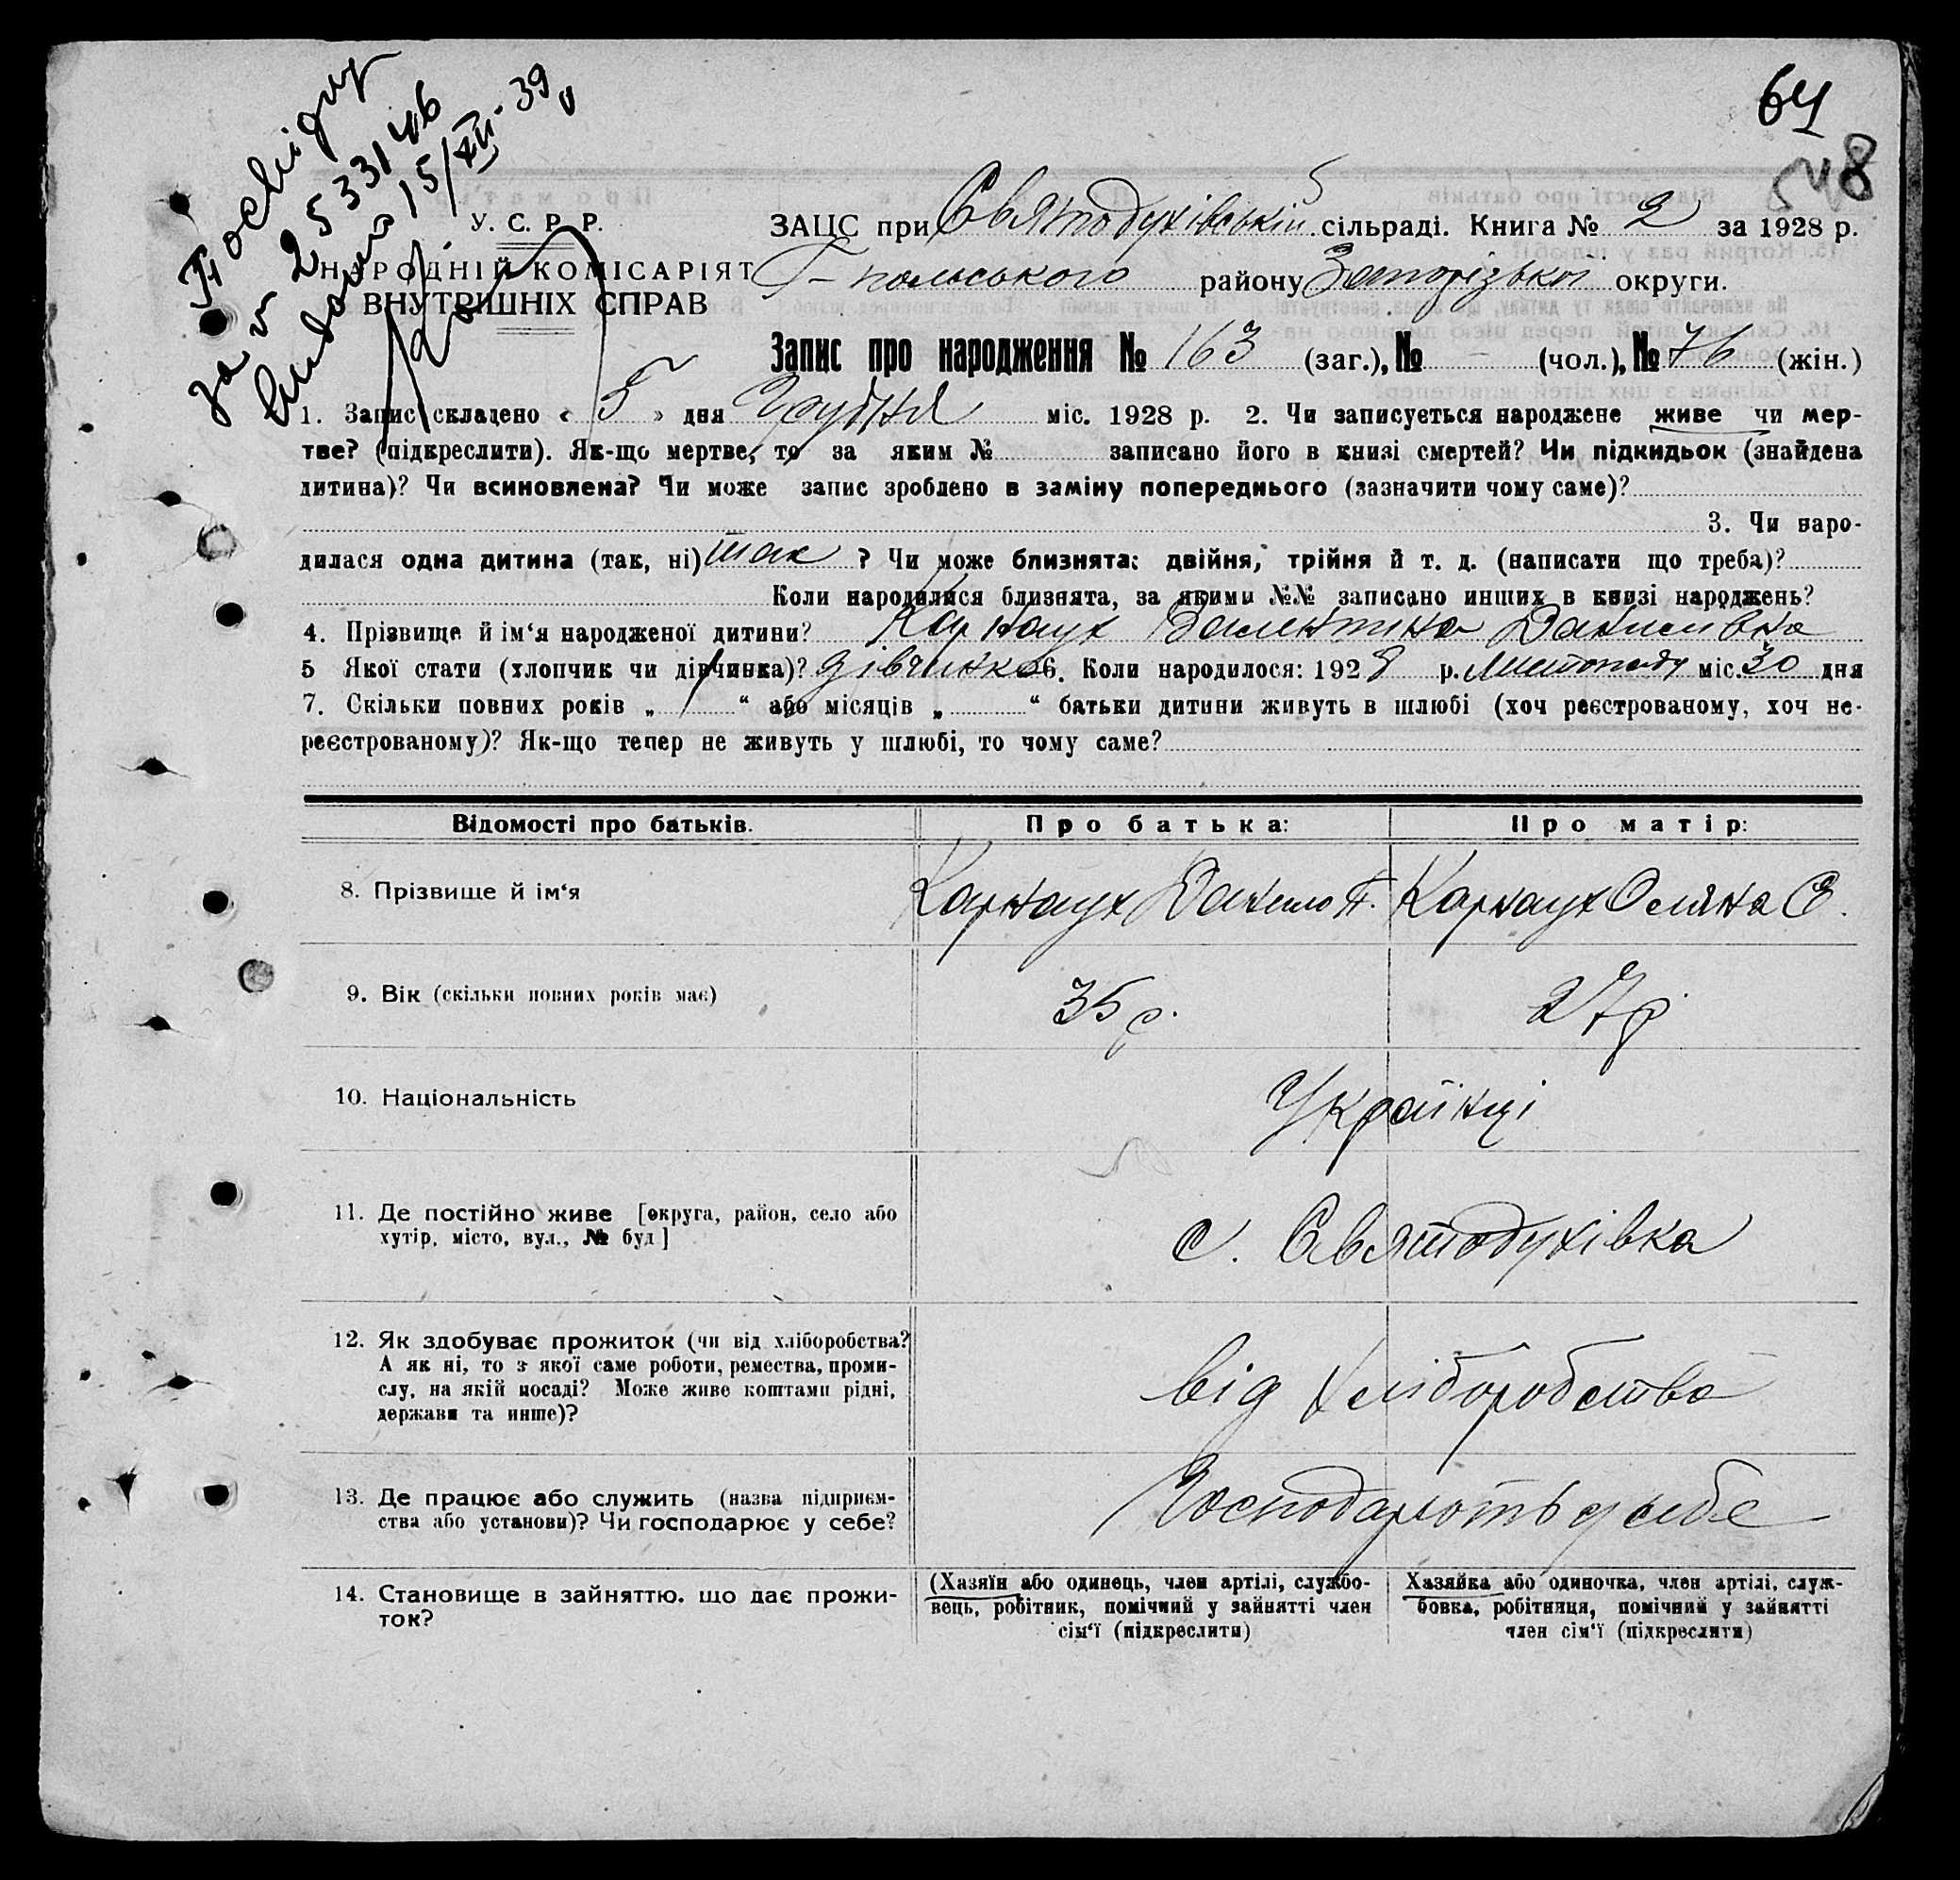 64
548
Посвідку
за № 253346
видано 15/XII-39
У. С. Р. Р.
НАРОДНІЙ КОМІСАРІЯТ
ВНУТРІШНІХ СПРАВ
ЗАЦС при Святодухівській сільраді. Книга № 2 за 1928 р.
Г-польського району Запорізької округи.
Запис про народження № 163 (заг.), № - (чол.), № 76 (жін.)
1. Запис складено « 5 » дня Грудня міс. 1928 р. 2. Чи записується народжене живе чи мер-
тве? (підкреслити). Як-що мертве, то за яким № записано його в книзі смертей? Чи підкидьок (знайдена
дитина)? Чи всиновлена? Чи може запис зроблено в заміну попереднього (зазначити чому саме)?
3. Чи наро-
дилася одна дитина (так, ні) так ? Чи може близнята: двійня, трійня й т. д. (написати що треба)?
Коли народилися близнята, за якими №№ записано инших в книзі народжень?
4. Прізвище й ім'я народженої дитини? Карнаух Валентина Данилівна
5 Якої стати (хлопчик чи дівчинка)? дівчинка 6. Коли народилося: 1928 р. Листопаду міс. 30 дня
7. Скільки повних років „ 1 “ або місяців „ “ батьки дитини живуть в шлюбі (хоч реєстрованому, хоч не-
реєстрованому)? Як-що тепер не живуть у шлюбі, то чому саме?
Відомості про батьків. Про батька: Про матір:
8. Прізвище й ім'я Карнаух Данило П. Карнаух Оляна Є.
9. Вік (скільки повних років має) 35 р. 27 р.
10. Національність Українці
11. Де постійно живе [округа, район, село або
хутір, місто, вул., № буд]
с. Святодухівка
12. Як здобуває прожиток (чи від хліборобства?
А як ні, то з якої саме роботи, ремества, проми-
слу, на якій посаді? Може живе коштами рідні,
держави та инше)?
від хліборобства
13. Де працює або служить (назва підприєм-
ства або установи)? Чи господарює у себе?
Господарють у себе
14. Становище в зайняттю. що дає прожи-
ток?
(Хазяїн або одинець, член артілі, службо-
вець, робітник, помічний у зайнятті член
сім'ї (підкреслити)
Хазяйка або одиночка, член артілі, служ-
бовка, робітниця, помічний у зайнятті
член сім'ї (підкреслити)